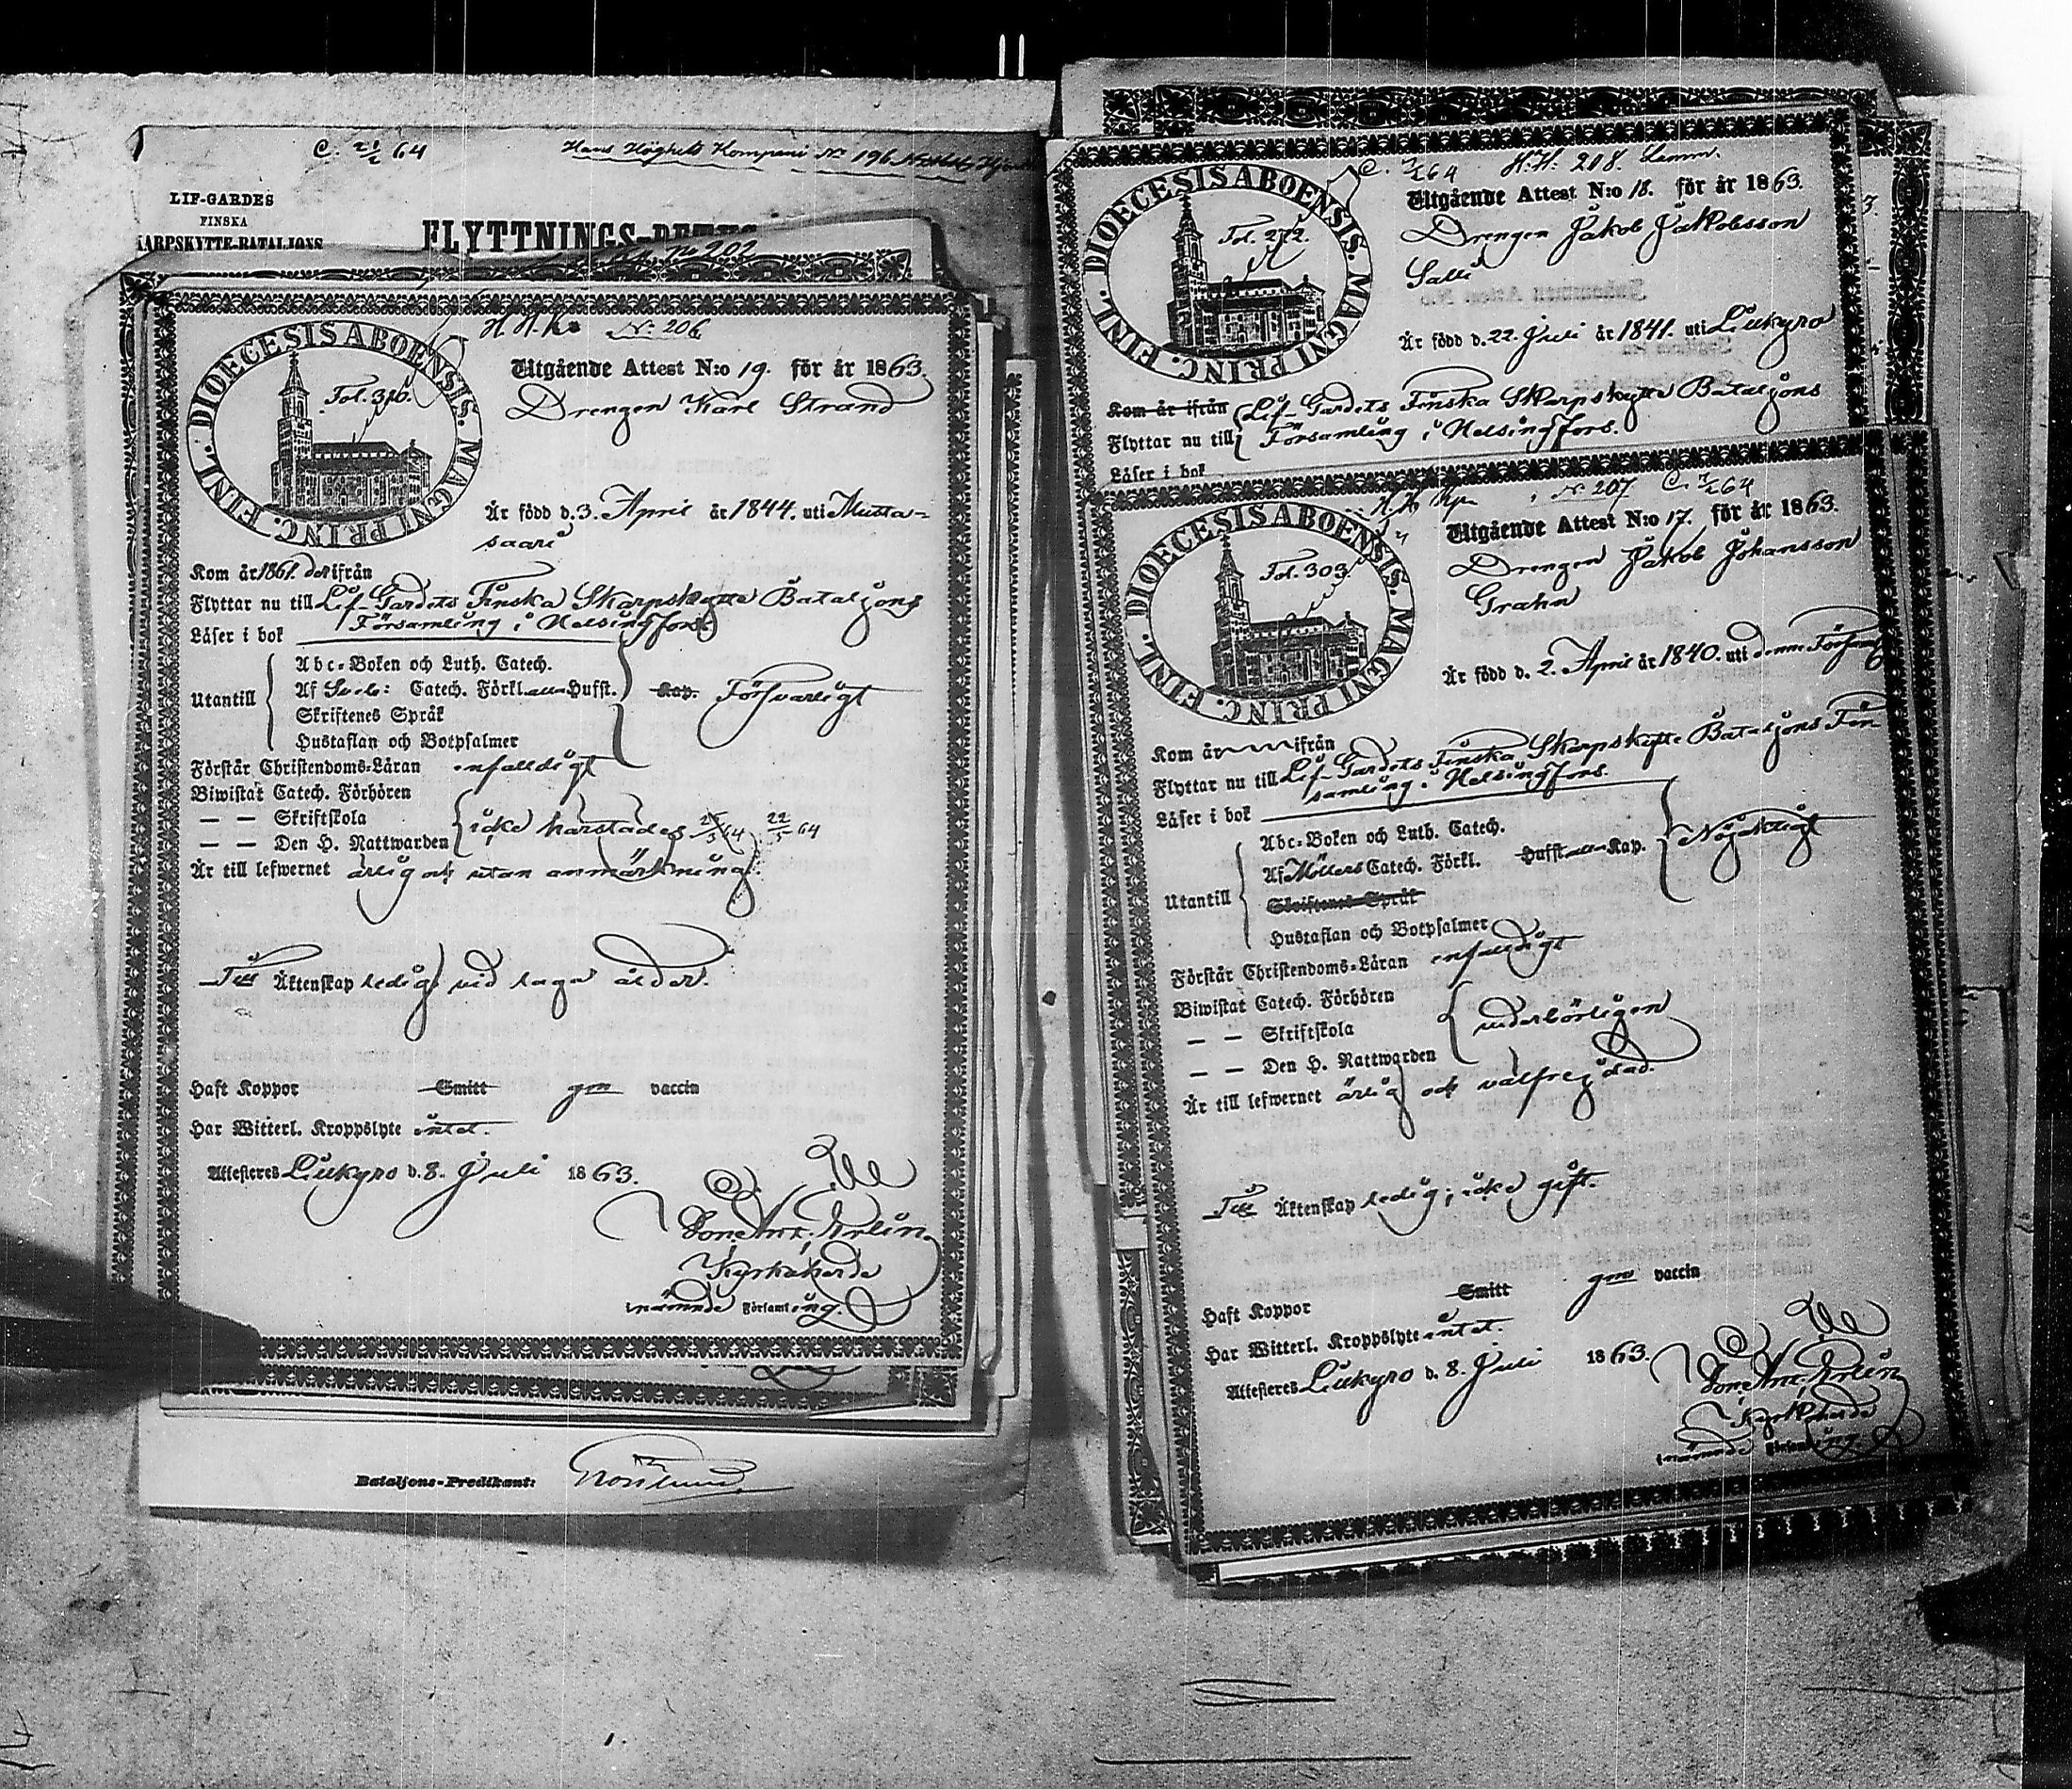 C. 21/2 64
Hans Höghets Kompani No 196
LIF-GARDES
FINSKA
SKARPSKYTTE-BATALJONS
FLYTTNINGS-BETYG
No 202
H. H. K. No 206
DIOECESIS ABOENSIS. MAGNI PRINC. FINL.
Fol. 316.
Utgående Attest N:o 19. för år 1863.
Drengen Karl Strand
Är född d. 3. April år 1844. uti Musta-
saari
Kom år 1861. ifrån
Flyttar nu till Lif-Gardets Finska Skarpskytte Bataljons
Församling i Helsingfors.
Läser i bok
Utantill
Abc-Boken och Luth. Catech.
Af Sveb: Catech. Förkl. Hufst. Kap. Försvarligt
Skriftenes Språk
Hustaflan och Botpsalmer
Förstår Christendoms-Läran enfaldigt
Biwistat Catech. Förhören
— — Skriftskola
— — Den H. Nattwarden icke härstädes 22/5 64
Är till lefwernet ärlig och utan anmärkning.
Till Äktenskap ledig vid laga ålder.
Haft Koppor Smitt gm vaccin
Har Witterl. Kroppslyte intet.
Attesteras Lillkyro d. 8. Juli 1863.
Kyrkoherde
i nämnde Församling.
Bataljons-Predikant:
C. 64 H. H. 208.
DIOECESIS ABOENSIS. MAGNI PRINC. FINL.
Fol. 272.
Utgående Attest N:o 18. för år 1863.
Drengen Jakob Jakobsson
Salli
Är född d. 22. Juli år 1841. uti Lillkyro
Kom år ifrån
Flyttar nu till Lif-Gardets Finska Skarpskytte Bataljons
Församling i Helsingfors.
Läser i bok
H. H. Kp. No 207 C. 64
DIOECESIS ABOENSIS. MAGNI PRINC. FINL.
Fol. 303.
Utgående Attest N:o 17. för år 1863.
Drengen Jakob Johansson
Grahn
Är född d. 2. April år 1840. uti denne Förs
Kom år ifrån
Flyttar nu till Lif-Gardets Finska Skarpskytte Bataljons För-
samling i Helsingfors.
Läser i bok
Utantill
Abc-Boken och Luth. Catech.
Af Möllers Catech. Förkl. Hufst. Kap. Nöjaktigt
Skriftenes Språk
Hustaflan och Botpsalmer
Förstår Christendoms-Läran enfaldigt
Biwistat Catech. Förhören
— — Skriftskola vederbörligen
— — Den H. Nattwarden
Är till lefwernet ärlig och välfrejdad.
Till Äktenskap ledig; icke gift.
Haft Koppor Smitt gm vaccin
Har Witterl. Kroppslyte intet.
Attesteras Lillkyro d. 8. Juli 1863.
Kyrkoherde
i nämnde Församling.